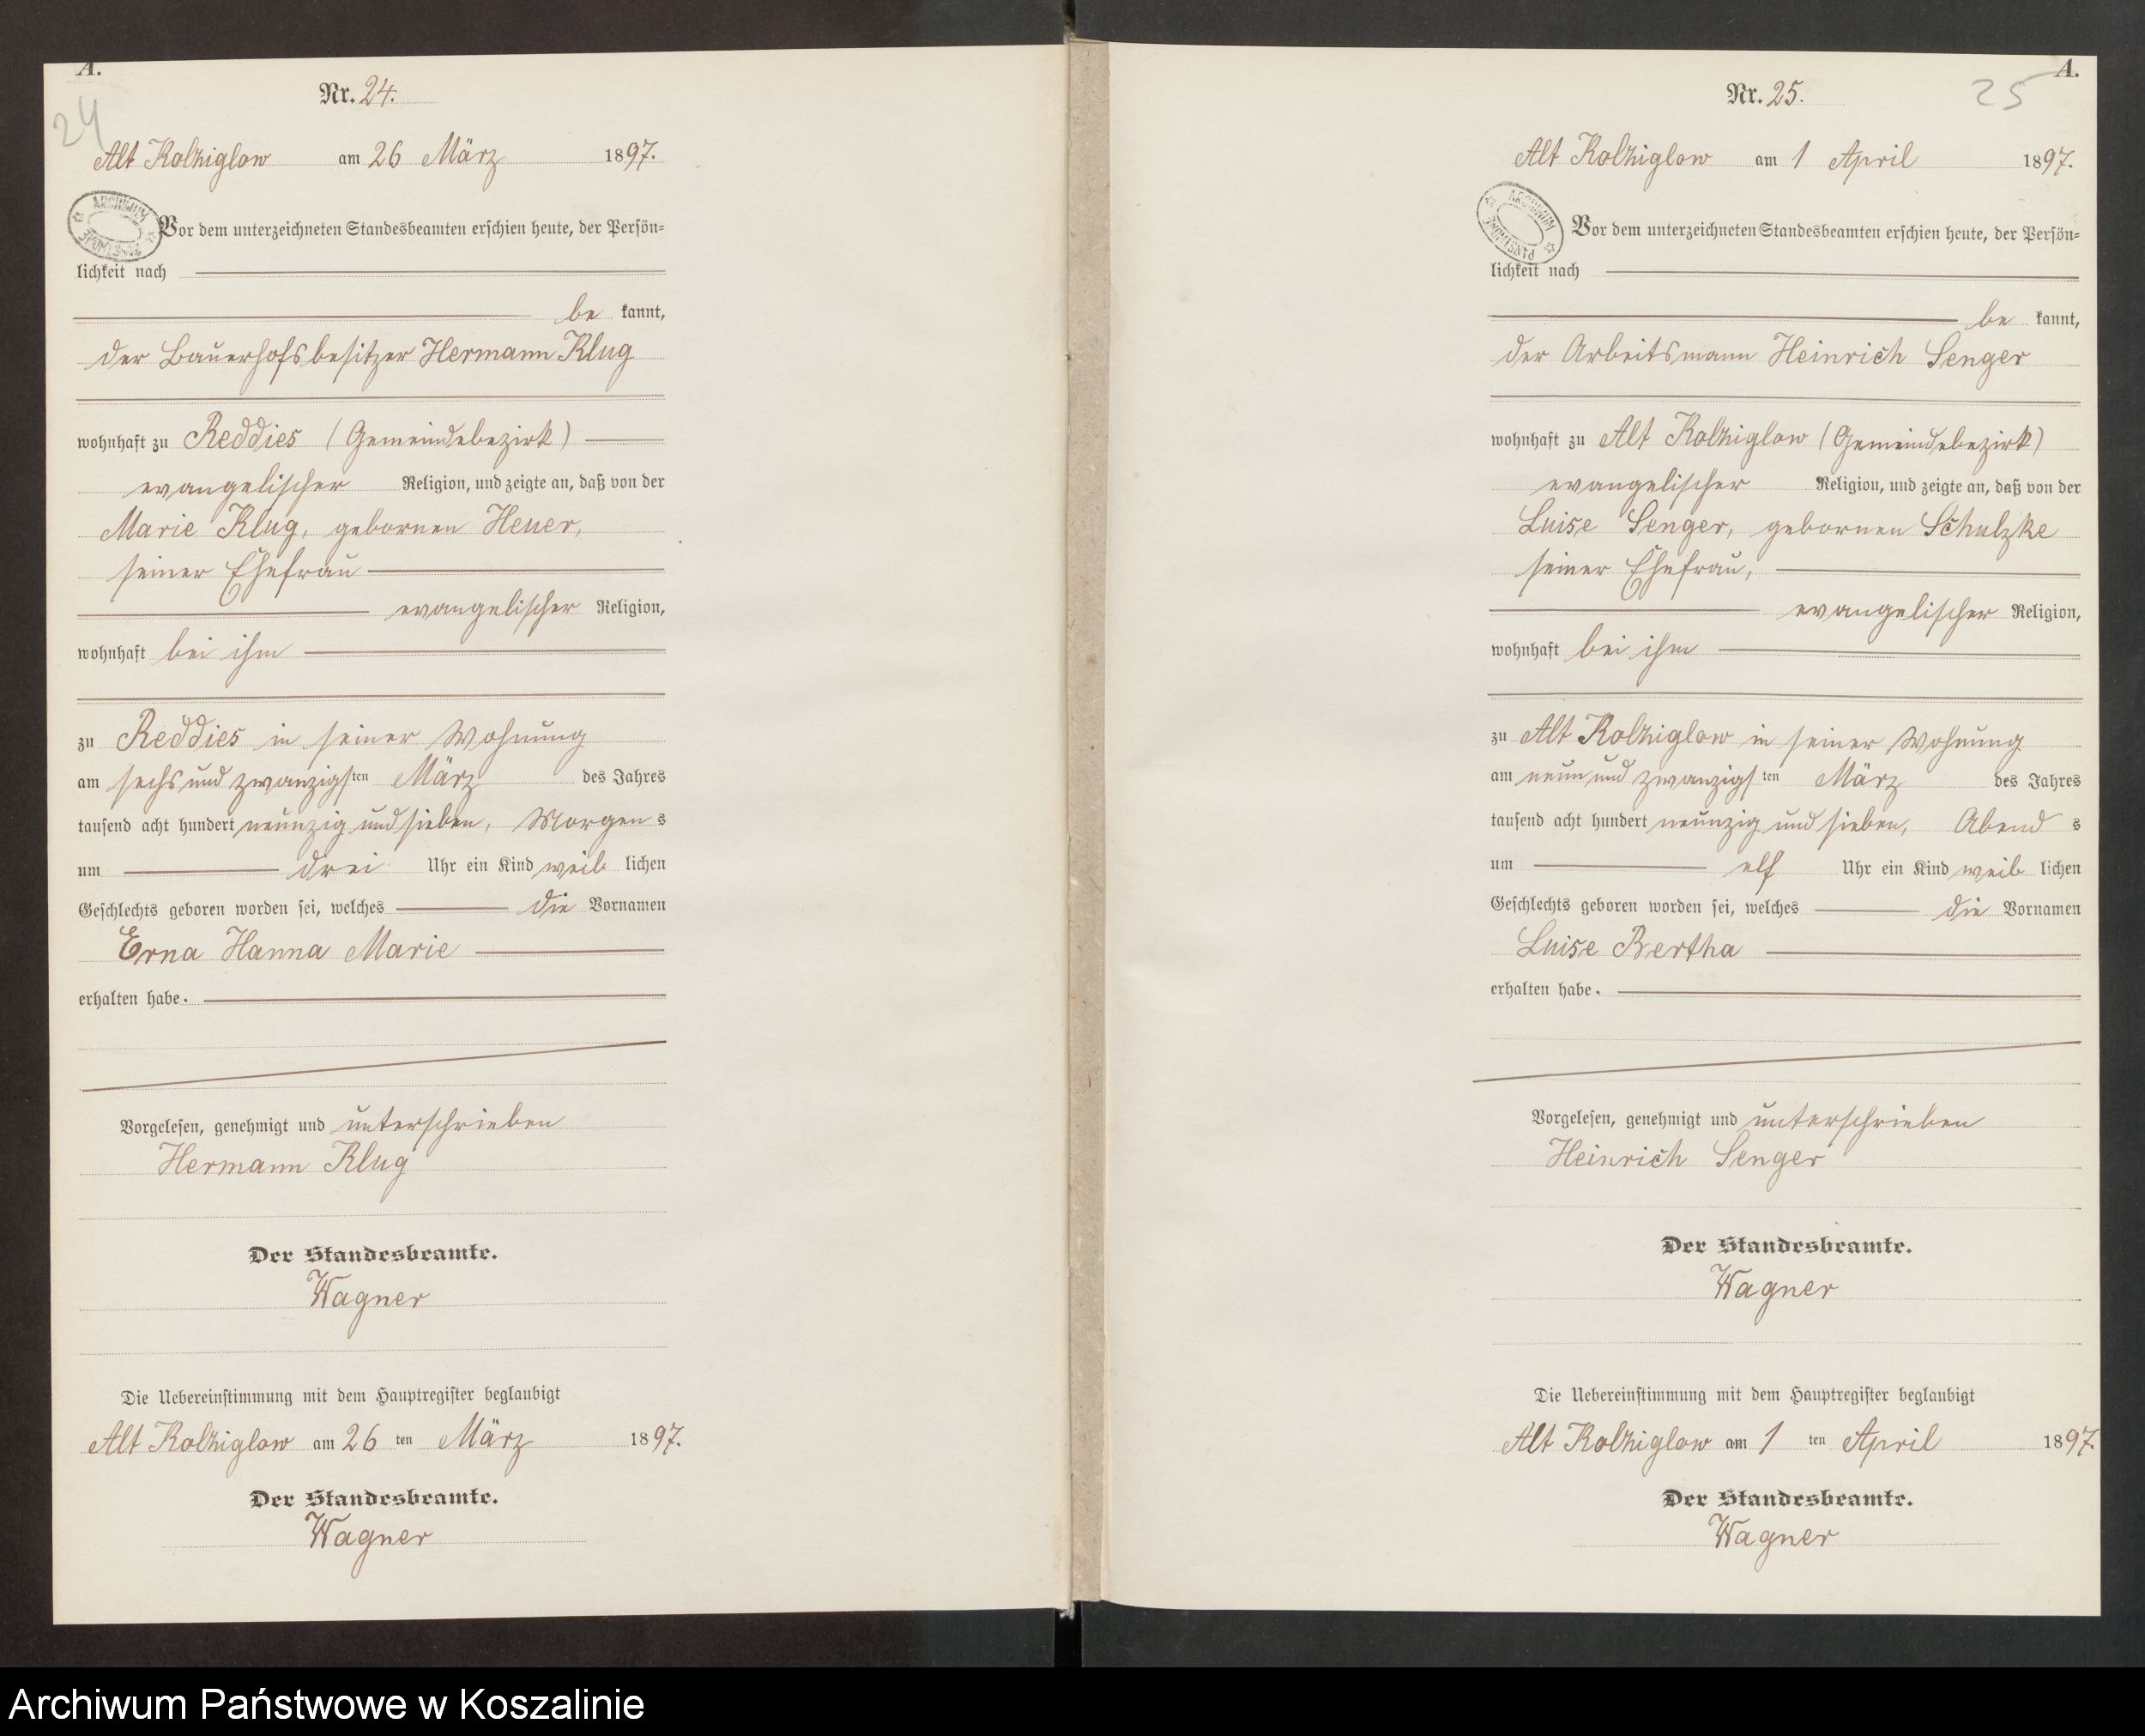 A.
24
Nr. 24.
Alt Kolziglow am 26 März 1897.
ARCHIWUM PAŃSTWOWE
Vor dem unterzeichneten Standesbeamten erschien heute, der Persön-
lichkeit nach
be kannt,
der Bauerhofsbesitzer Hermann Klug
wohnhaft zu Reddies (Gemeindebezirk)
evangelischer Religion, und zeigte an, daß von der
Marie Klug, gebornen Heuer,
seiner Ehefrau
evangelischer Religion,
wohnhaft bei ihm
zu Reddies in seiner Wohnung
am sechs und zwanzigsten März des Jahres
tausend acht hundert neunzig und sieben, Morgens
um drei Uhr ein Kind weiblichen
Geschlechts geboren worden sei, welches die Vornamen
Erna Hanna Marie
erhalten habe.
Vorgelesen, genehmigt und unterschrieben
Hermann Klug
Der Standesbeamte.
Wagner
Die Uebereinstimmung mit dem Hauptregister beglaubigt
Alt Kolziglow am 26 ten März 1897.
Der Standesbeamte.
Wagner
A.
25
Nr. 25.
Alt Kolziglow am 1 April 1897.
ARCHIWUM PAŃSTWOWE
Vor dem unterzeichneten Standesbeamten erschien heute, der Persön-
lichkeit nach
be kannt,
der Arbeitsmann Heinrich Senger
wohnhaft zu Alt Kolziglow (Gemeindebezirk)
evangelischer Religion, und zeigte an, daß von der
Luise Senger, gebornen Schulzke
seiner Ehefrau,
evangelischer Religion,
wohnhaft bei ihm
zu Alt Kolziglow in seiner Wohnung
am neun und zwanzigsten März des Jahres
tausend acht hundert neunzig und sieben, Abends
um elf Uhr ein Kind weiblichen
Geschlechts geboren worden sei, welches die Vornamen
Luise Bertha
erhalten habe.
Vorgelesen, genehmigt und unterschrieben
Heinrich Senger
Der Standesbeamte.
Wagner
Die Uebereinstimmung mit dem Hauptregister beglaubigt
Alt Kolziglow am 1 ten April 1897.
Der Standesbeamte.
Wagner
Archiwum Państwowe w Koszalinie